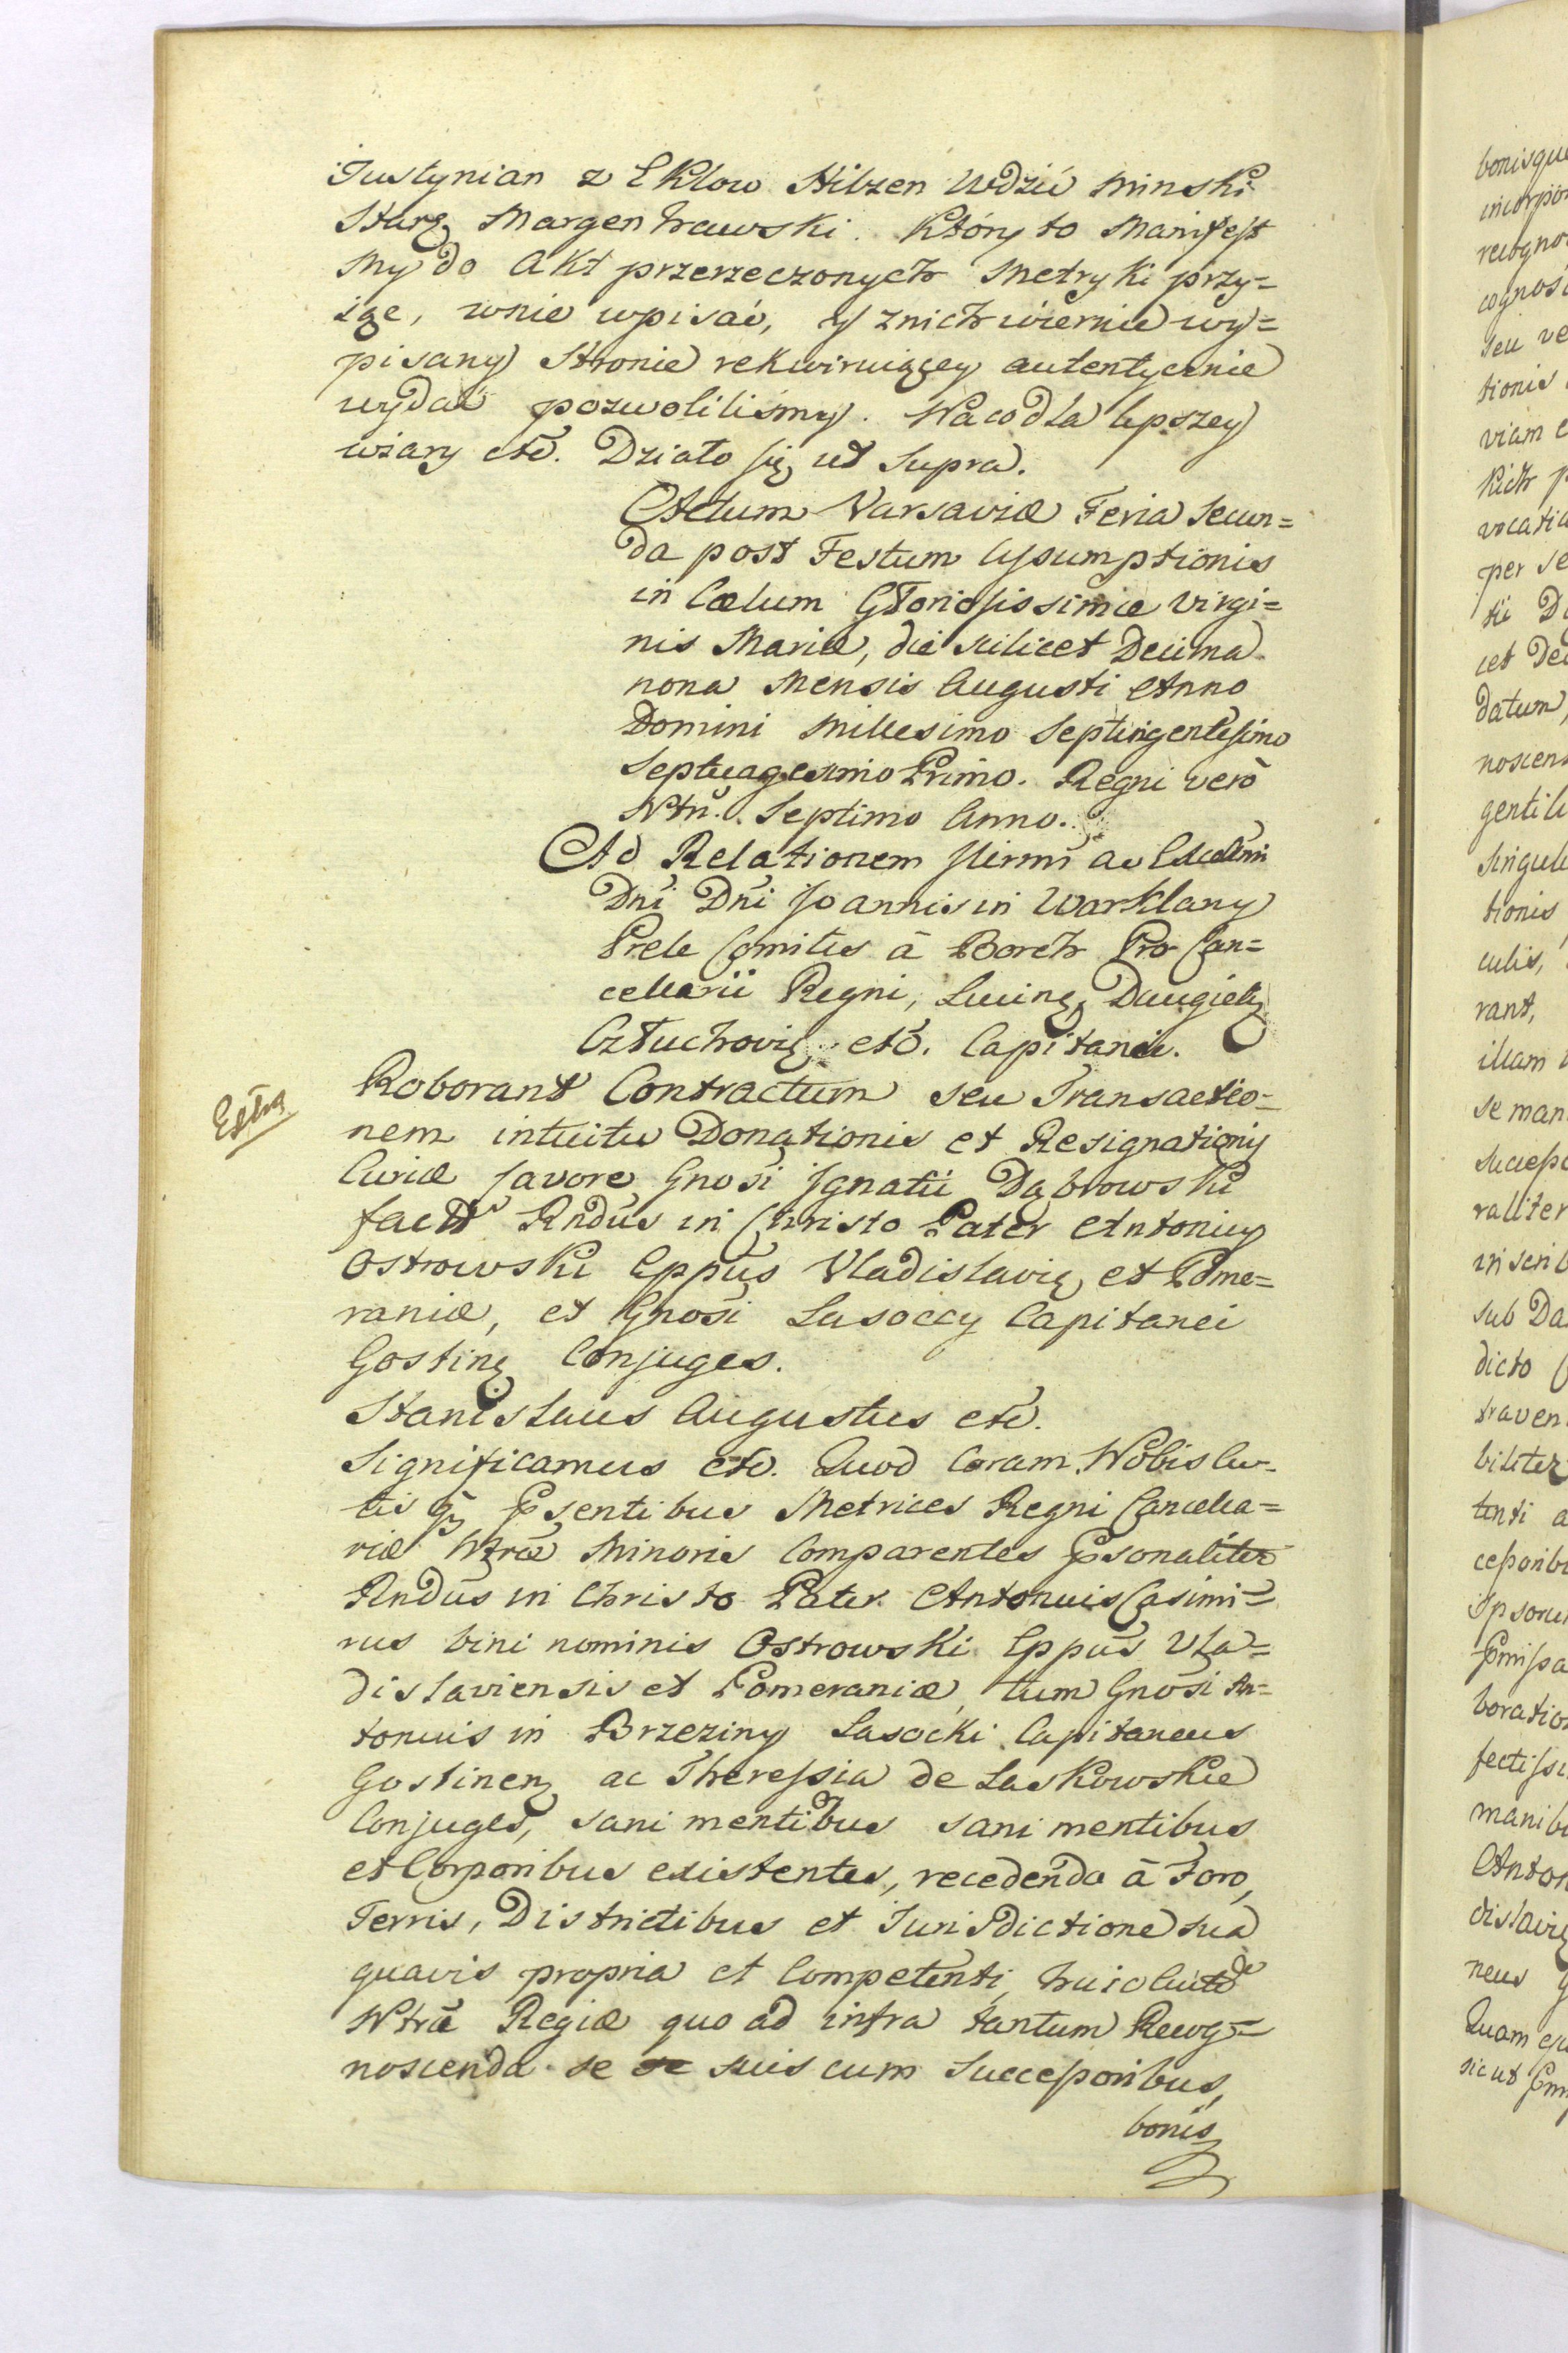 Justynian z Eklow Hilzen Wdzić Minski
Starę Margentrawski. Który to Manifest
My do Akt przerzeczonych Metryki przy=
iąć, wnie wpisać, y znich wiernie wy=
pisany Stronie rekwiruiącey autentycznie
wydać pozwoliliśmy. Na co dla lepszey
wiary etc̄. Działo się ut Supra.
Actum Varsaviæ Feria Secun=
da post Festum Assumptionis
in Cælum Gloriosissimæ Virgi=
nis Mariæ, die scilicet Decima
nona Mensis Augusti Anno
Domini Millesimo Septingentesimo
Septuagesimo Primo. Regni verò
Ntri. Septimo Anno.
Ad Relationem Illrmi ac Excellmi
Dni Dni Joannis in Warklany
Prele Comites à Borch Pro Can=
cellarii Regni, Lucinę, Daugielę
Człuchovię etc̄. Capitanei.
Extra
Roborant Contractum seu Transactio=
nem intuitu Donationis et Resignationis
Curiæ favore Gnosi Ignatii Dąbrowski
fact Rndus in Christo Pater Antonius
Ostrowski Eppus Vladislavię et Pome=
raniæ, et Gnosi Lasoccy Capitanei
Gostinę Conjuges.
Stanislaus Augustus etc̄.
Significamus etc̄. Quod Coram Nobis Cu=
tis qȝ Psentibus Metrices Regni Cancella=
riæ Ntræ Minoris Comparentes Psonaliter
Rndus in Christo Pater Antonius Casimi=
rus bini nominis Ostrowski Eppus Vla=
dislaviensis et Pomeraniæ, tum Gnosi An=
tonius in Brzeziny Lasocki Capitaneus
Gostinenę ac Theressia de Laskowskie
Conjuges, sani mentibus sani mentibus
et Corporibus existentes, recedendo à Foro,
Terris, Districtibus et Jurisdictione sua
quavis propria et Competenti, huic
Ntræ Regiæ quo ad infra tantum Recog=
noscenda se suis cum Successoribus,
bonis
bonisque